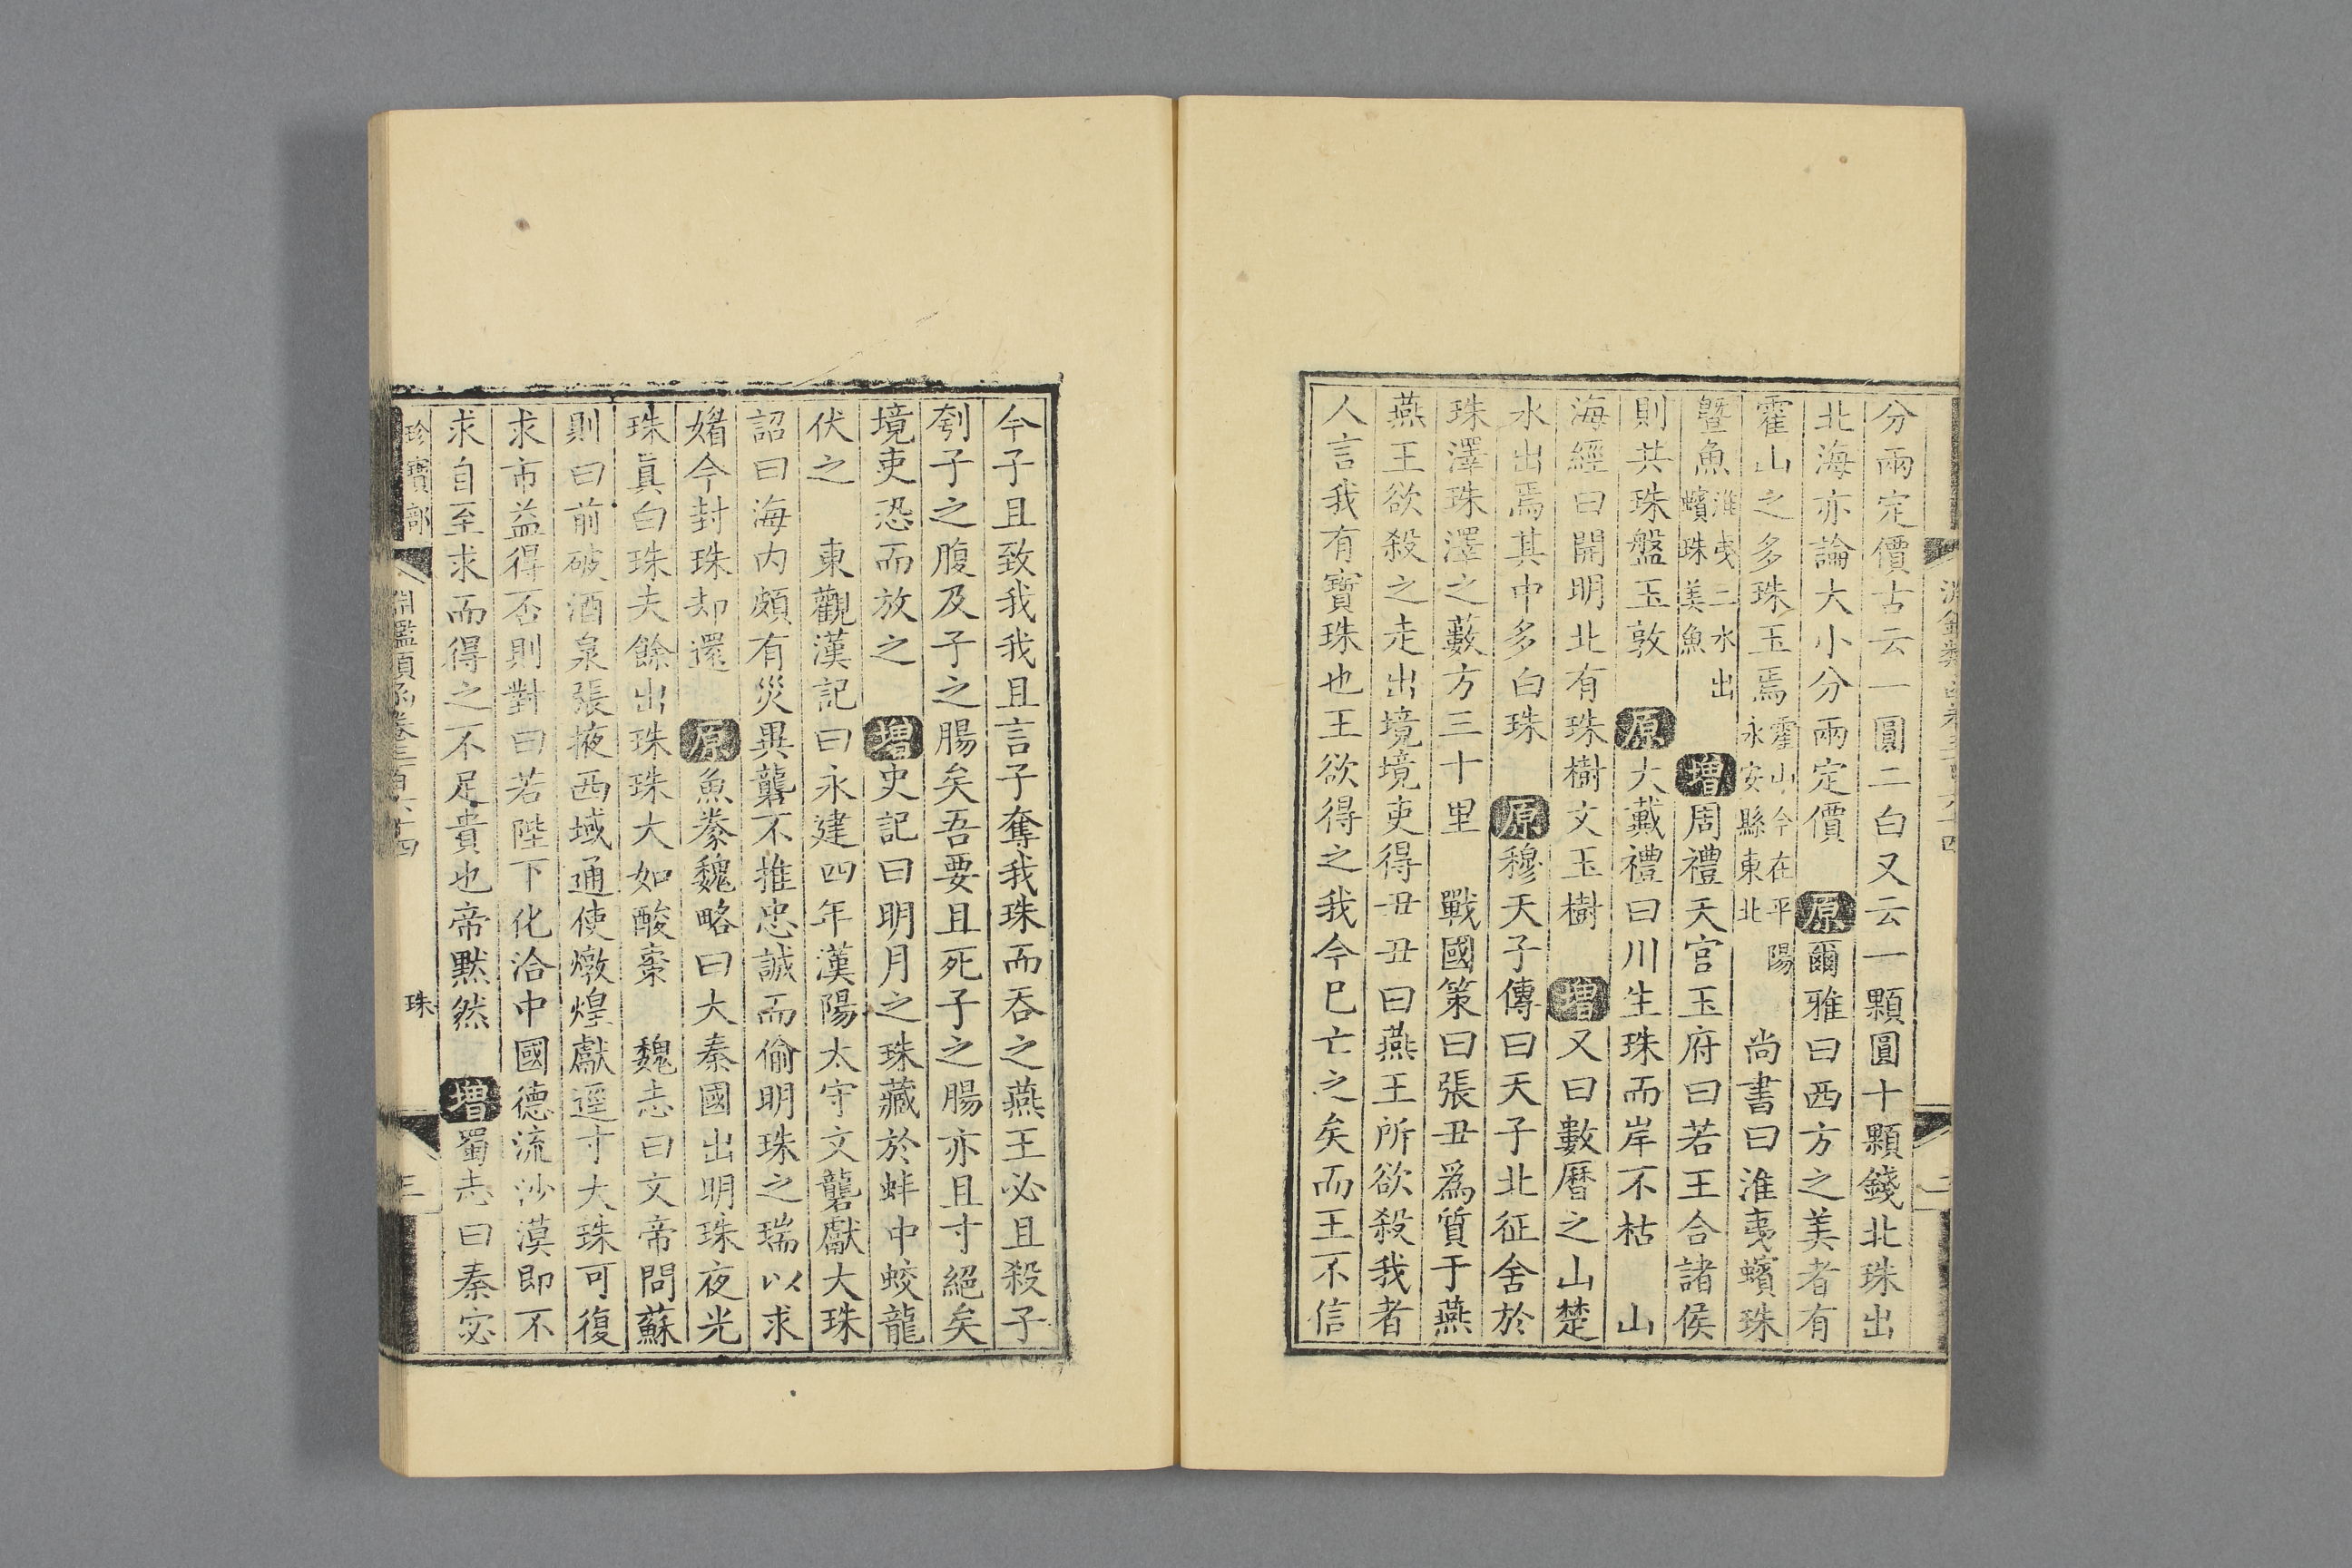 分兩定價古云一圓二白又云一顆圓十顆錢北珠出
北海亦論大小分兩定價 原爾雅曰西方之美者有
霍山之多珠玉焉霍山今在平陽永安縣東北 尚書曰淮夷蠙珠
曁魚淮夷二水出蠙珠美魚 增周禮天官玉府曰若王合諸侯
則共珠盤玉敦 原大戴禮曰川生珠而岸不枯 山
海經曰開明北有珠樹文玉樹 增又曰數曆之山楚
水出焉其中多白珠 原穆天子傳曰天子北征舍於
珠澤珠澤之藪方三十里 戰國策曰張丑爲質于燕
燕王欲殺之走出境境吏得丑丑曰燕王所欲殺我者
人言我有寶珠也王欲得之我今巳亡之矣而王不信
今子且致我我且言子奪我珠而吞之燕王必且殺子
刳子之腹及子之腸矣吾要且死子之腸亦且寸絕矣
境吏恐而放之 增史記曰明月之珠藏於蚌中蛟龍
伏之 東觀漢記曰永建四年漢陽太守文礱獻大珠
詔曰海内頗有災異礱不推忠誠而偷明珠之瑞以求
媚今封珠却還 原魚豢魏略曰大秦國出明珠夜光
珠眞白珠夫餘出珠珠大如酸棗 魏志曰文帝問蘇
則曰前破酒泉張掖西域通使燉煌獻逕寸大珠可復
求市益得否則對曰若陛下化洽中國德流沙漠即不
求自至求而得之不足貴也帝默然 增蜀志曰秦宓
珍寶部 淵鑑類函卷三百六十四 珠 三